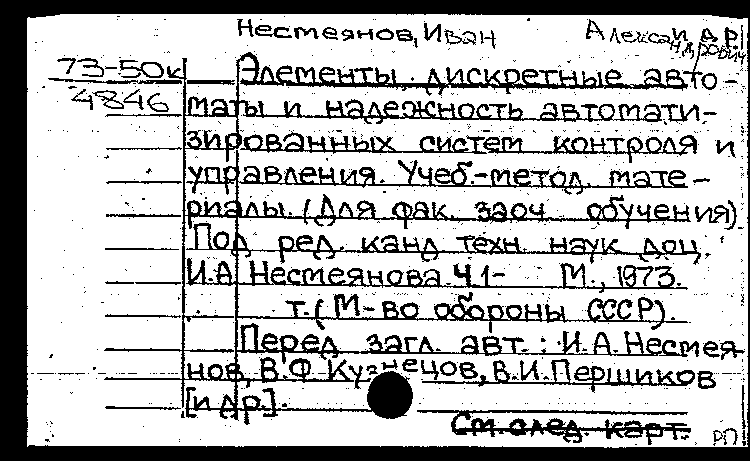 Нестеянов, Иван Александрович
73-50к
4846
Элементы дискретные авто-
маты и надежность автомати-
зированных систем контроля и
управления. Учеб.-метод. мате-
риалы. (Для фак. заоч обучения)
Под ред. канд техн наук доц.
И.А Нестеянова Ч.1- М., 1973.
т. (М-во обороны СССР).
Перед загл. авт.: И.А.Нестея-
нов, В.Ф Кузнецов, В.И.Першиков
[и др].
См. след. карт.
РП